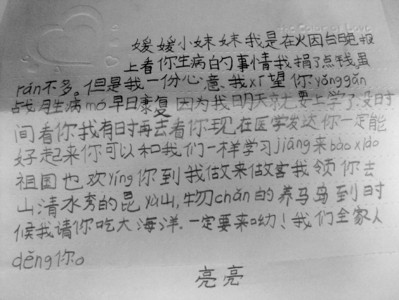 媛媛小妹妹我是在火因台晚报
上看你生病白勺事情我捐了点钱虽
rán不多。但是我一份心意。我xī望你yǒnggǎn
战月生病mó早日康复 因为我明天就要上学了没时
间看你我有时再去看你现在医学发达你一定能
好起来你可以和我们一样学习jiāng来bào xiào
祖国也欢yíng你到我做来做客我领你去
山清水秀的昆yú山,牛勿chǎn的养马岛到时
候我请你吃大海洋.一定要来哟！我们全家人
děng你。
亮亮